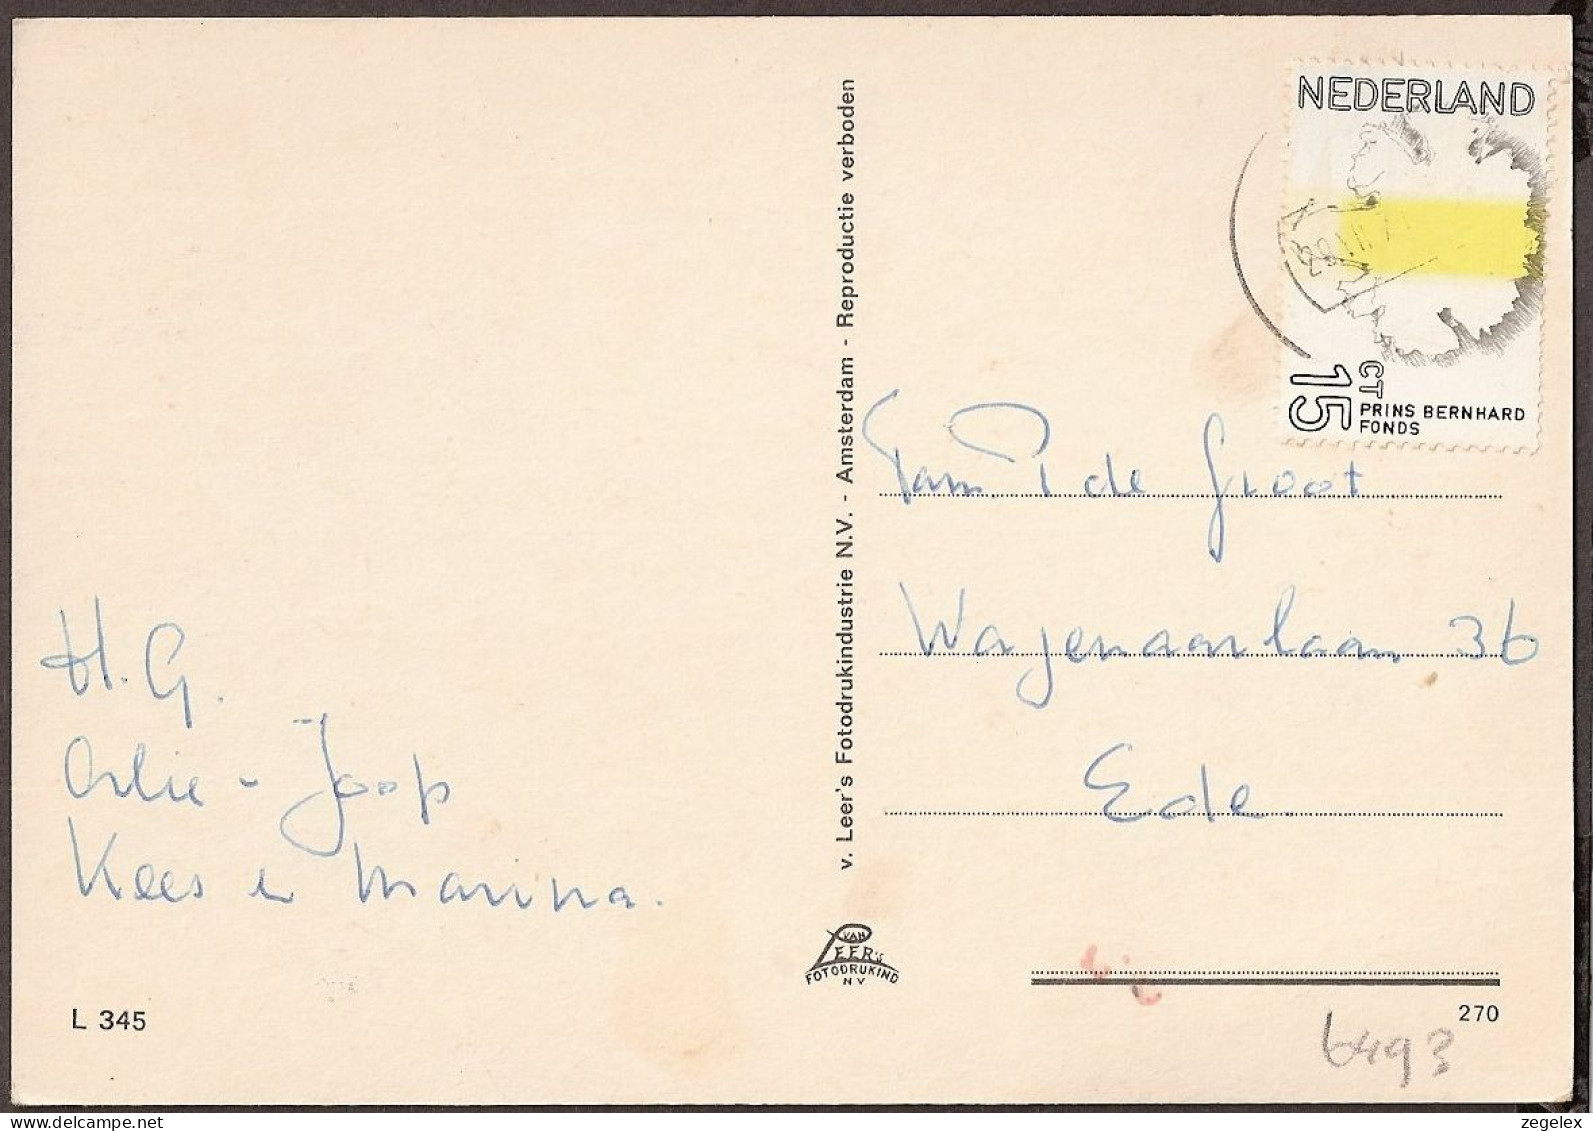 NEDERLAND
15 CT
PRINS BERNHARD
FONDS
Fam. P de Groot
Wagenaarlaan 36
Ede.
H.G.
Arlie - Joop
Kees en Marina.
v. Leer's Fotodrukindustrie N.V. - Amsterdam - Reproductie verboden
VAN
LEER'S
FOTODRUKIND
NV
L 345
270
6493
zegelex